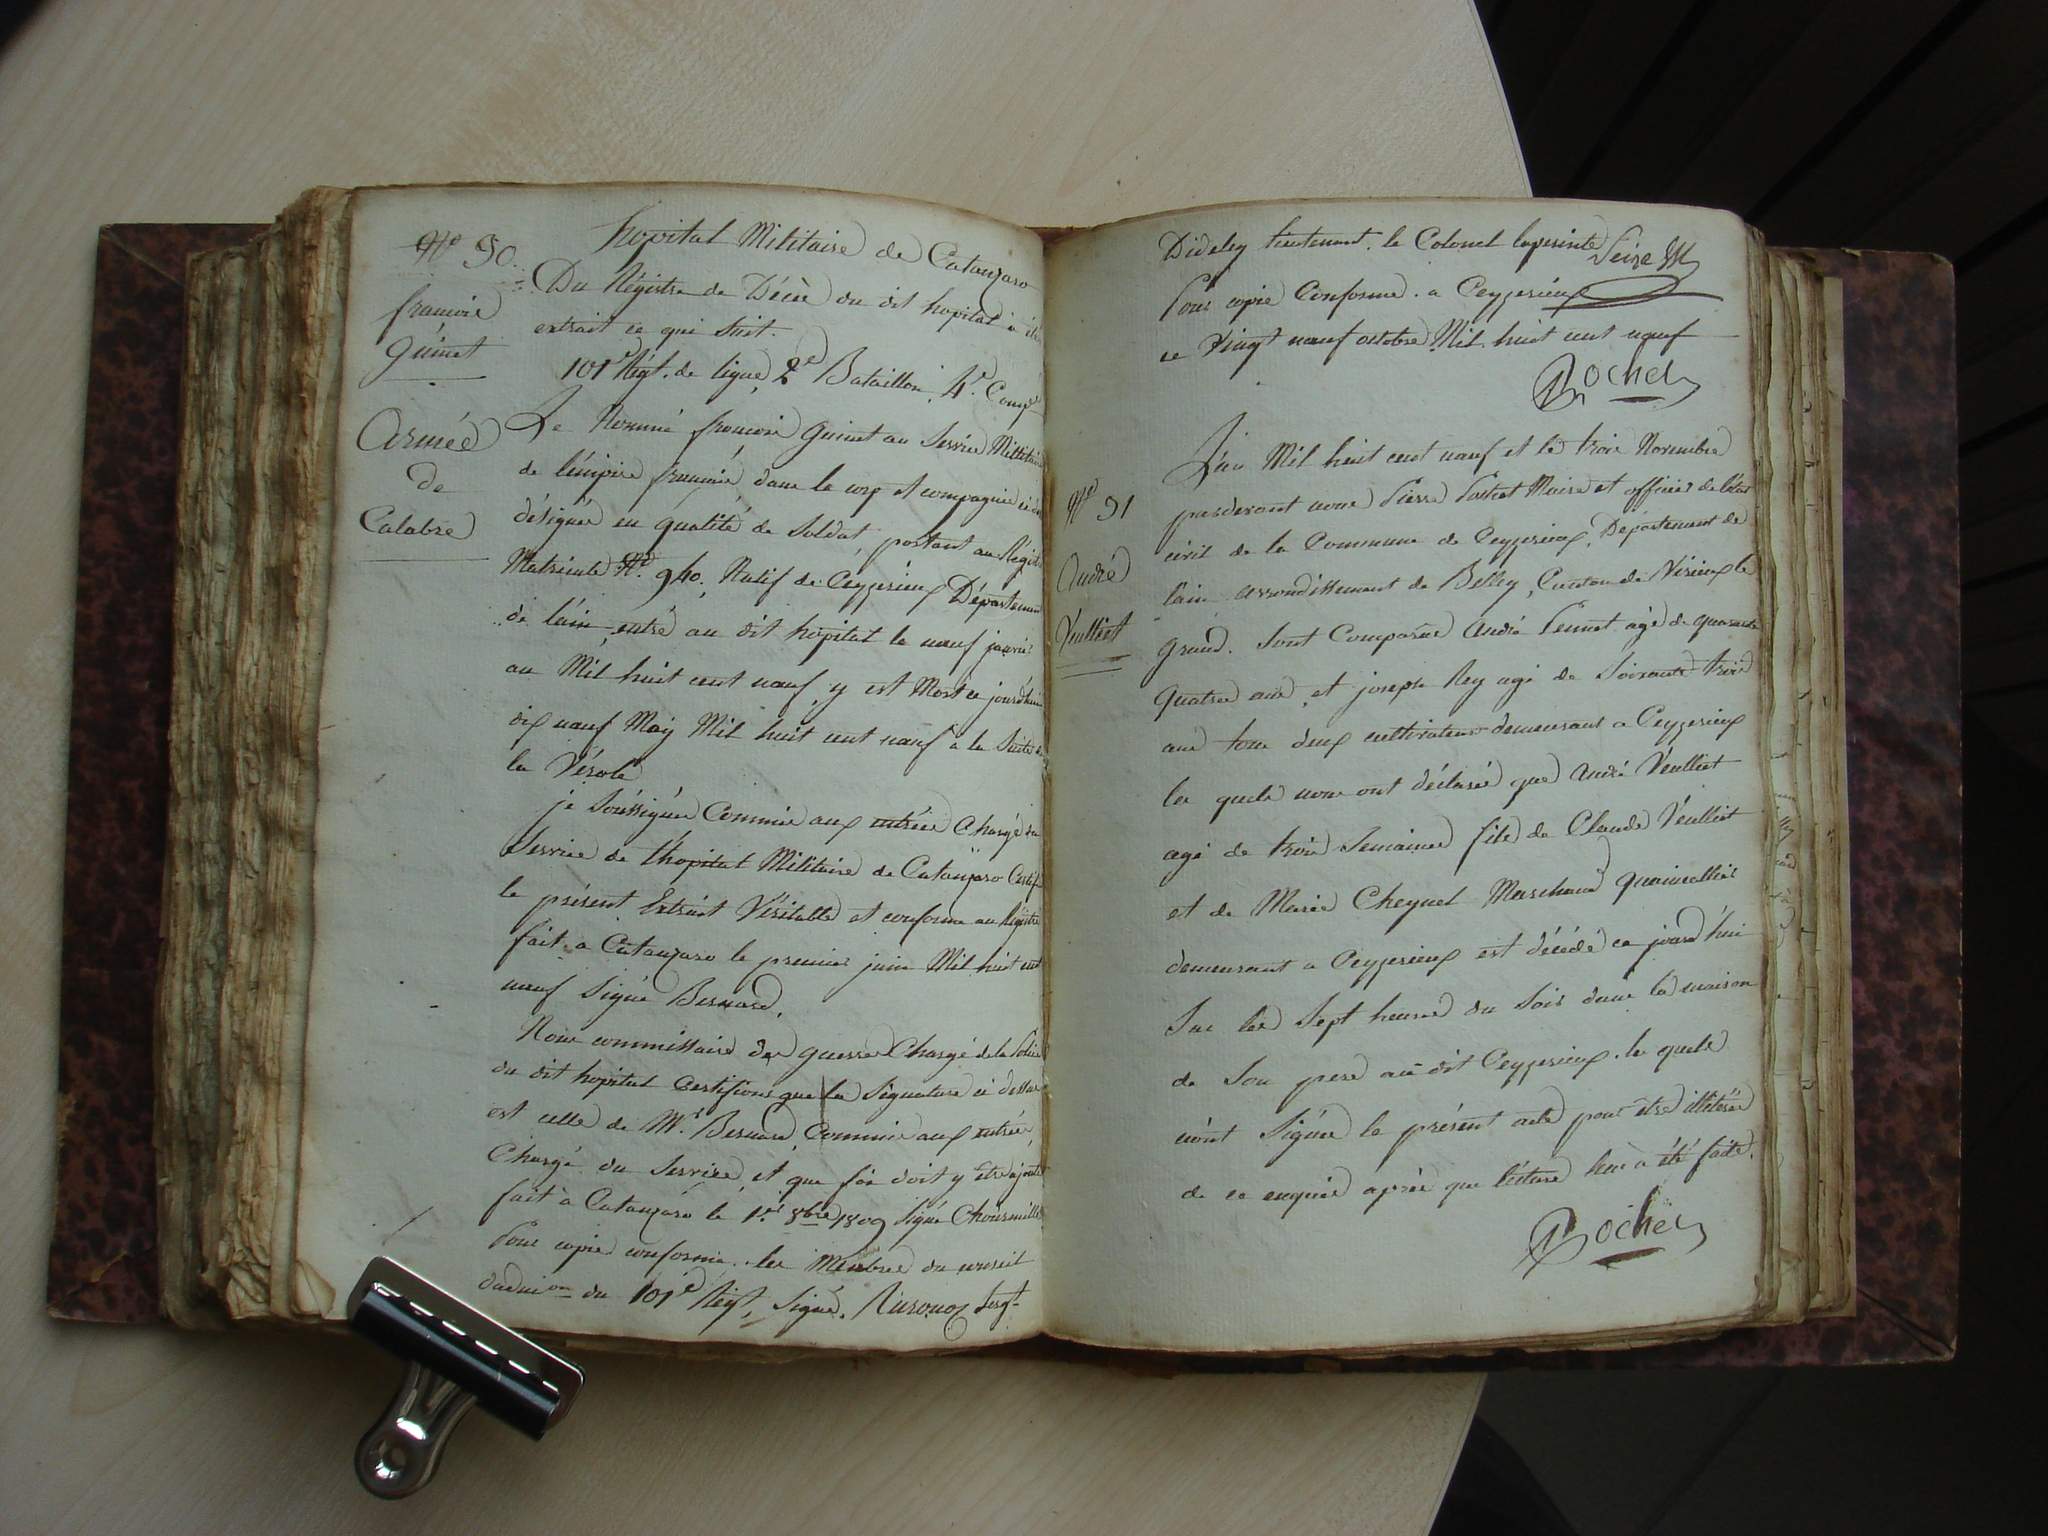 N° 30.
françois
Guinet
Armée
de
Calabre
hopital Militaire de Catanzaro
Du Régistre de Décès du dit hopital à été
extrait ce qui suit.
101e Régt. de ligne, 2e Bataillon, 4e. Compe
Le Nommé françois Guinet au Service Militaire
de l'émpire françois dans le corps et compagnie ci des
désignés en qualité de Soldat, portant au Régis
Matricule N°. 940. Natif de Ceyzerieux Département
de l'ain, entré au dit hopital le neuf janvier
an Mil huit cent neuf, y est Mort ce jourd'hui
dix neuf May Mil huit cent neuf à la Suite de
la Vérole
je Soussigné Commis aux entrées Chargé du
Service de l'hopital Militaire de Catanzaro Certifie
le présent Extrait Véritable et conforme au Régistre
fait a Catanzaro le premier juin Mil huit cent
neuf Signé Bernard.
Nous commissaire des guerres Chargé de la Police
du dit hopital Certifions que la Signature ci dessus
est celle de Mr. Bernard Commis aux entrées,
Chargé du Service, et que foi doit y être ajouté
fait à Catanzaro le 1er. 8bre 1809 Signé
Pour copie conforme. les Membres du conseil
d'admion du 101e Régt, Signé. Sergt.
Lieutenant, le Colonel
Pour copie Conforme. a Ceyzerieux
ce Vingt neuf octobre Mil huit cent neuf
Rochet
N° 31
André
Veulliet
L'an Mil huit cent neuf et le trois Novembre
pardevant nous Pierre Rochet Maire et officier de l'état
civil de la Commune de Ceyzerieux, Département de
l'ain arrondissement de Belley, Canton de Virieux le
grand. Sont Comparus André Pennet agé de quarante
quatre ans, et joseph Rey agé de Soixante trois
ans tous deux cultivateurs demeurant a Ceyzerieux
les quels nous ont déclaré que André Veulliet
agé de trois Semaines fils de Claude Veulliet
et de Marie Cheynel Marchand quaincallier
demeurant a Ceyzerieux est décédé ce jourd'hui
Sur les Sept heures du Soir dans la maison
de Son pere au dit Ceyzerieux. les quels
n'ont Signé le présent acte pour être illitérés
de ce enquis après que lecture leur à été faite.
Rochet